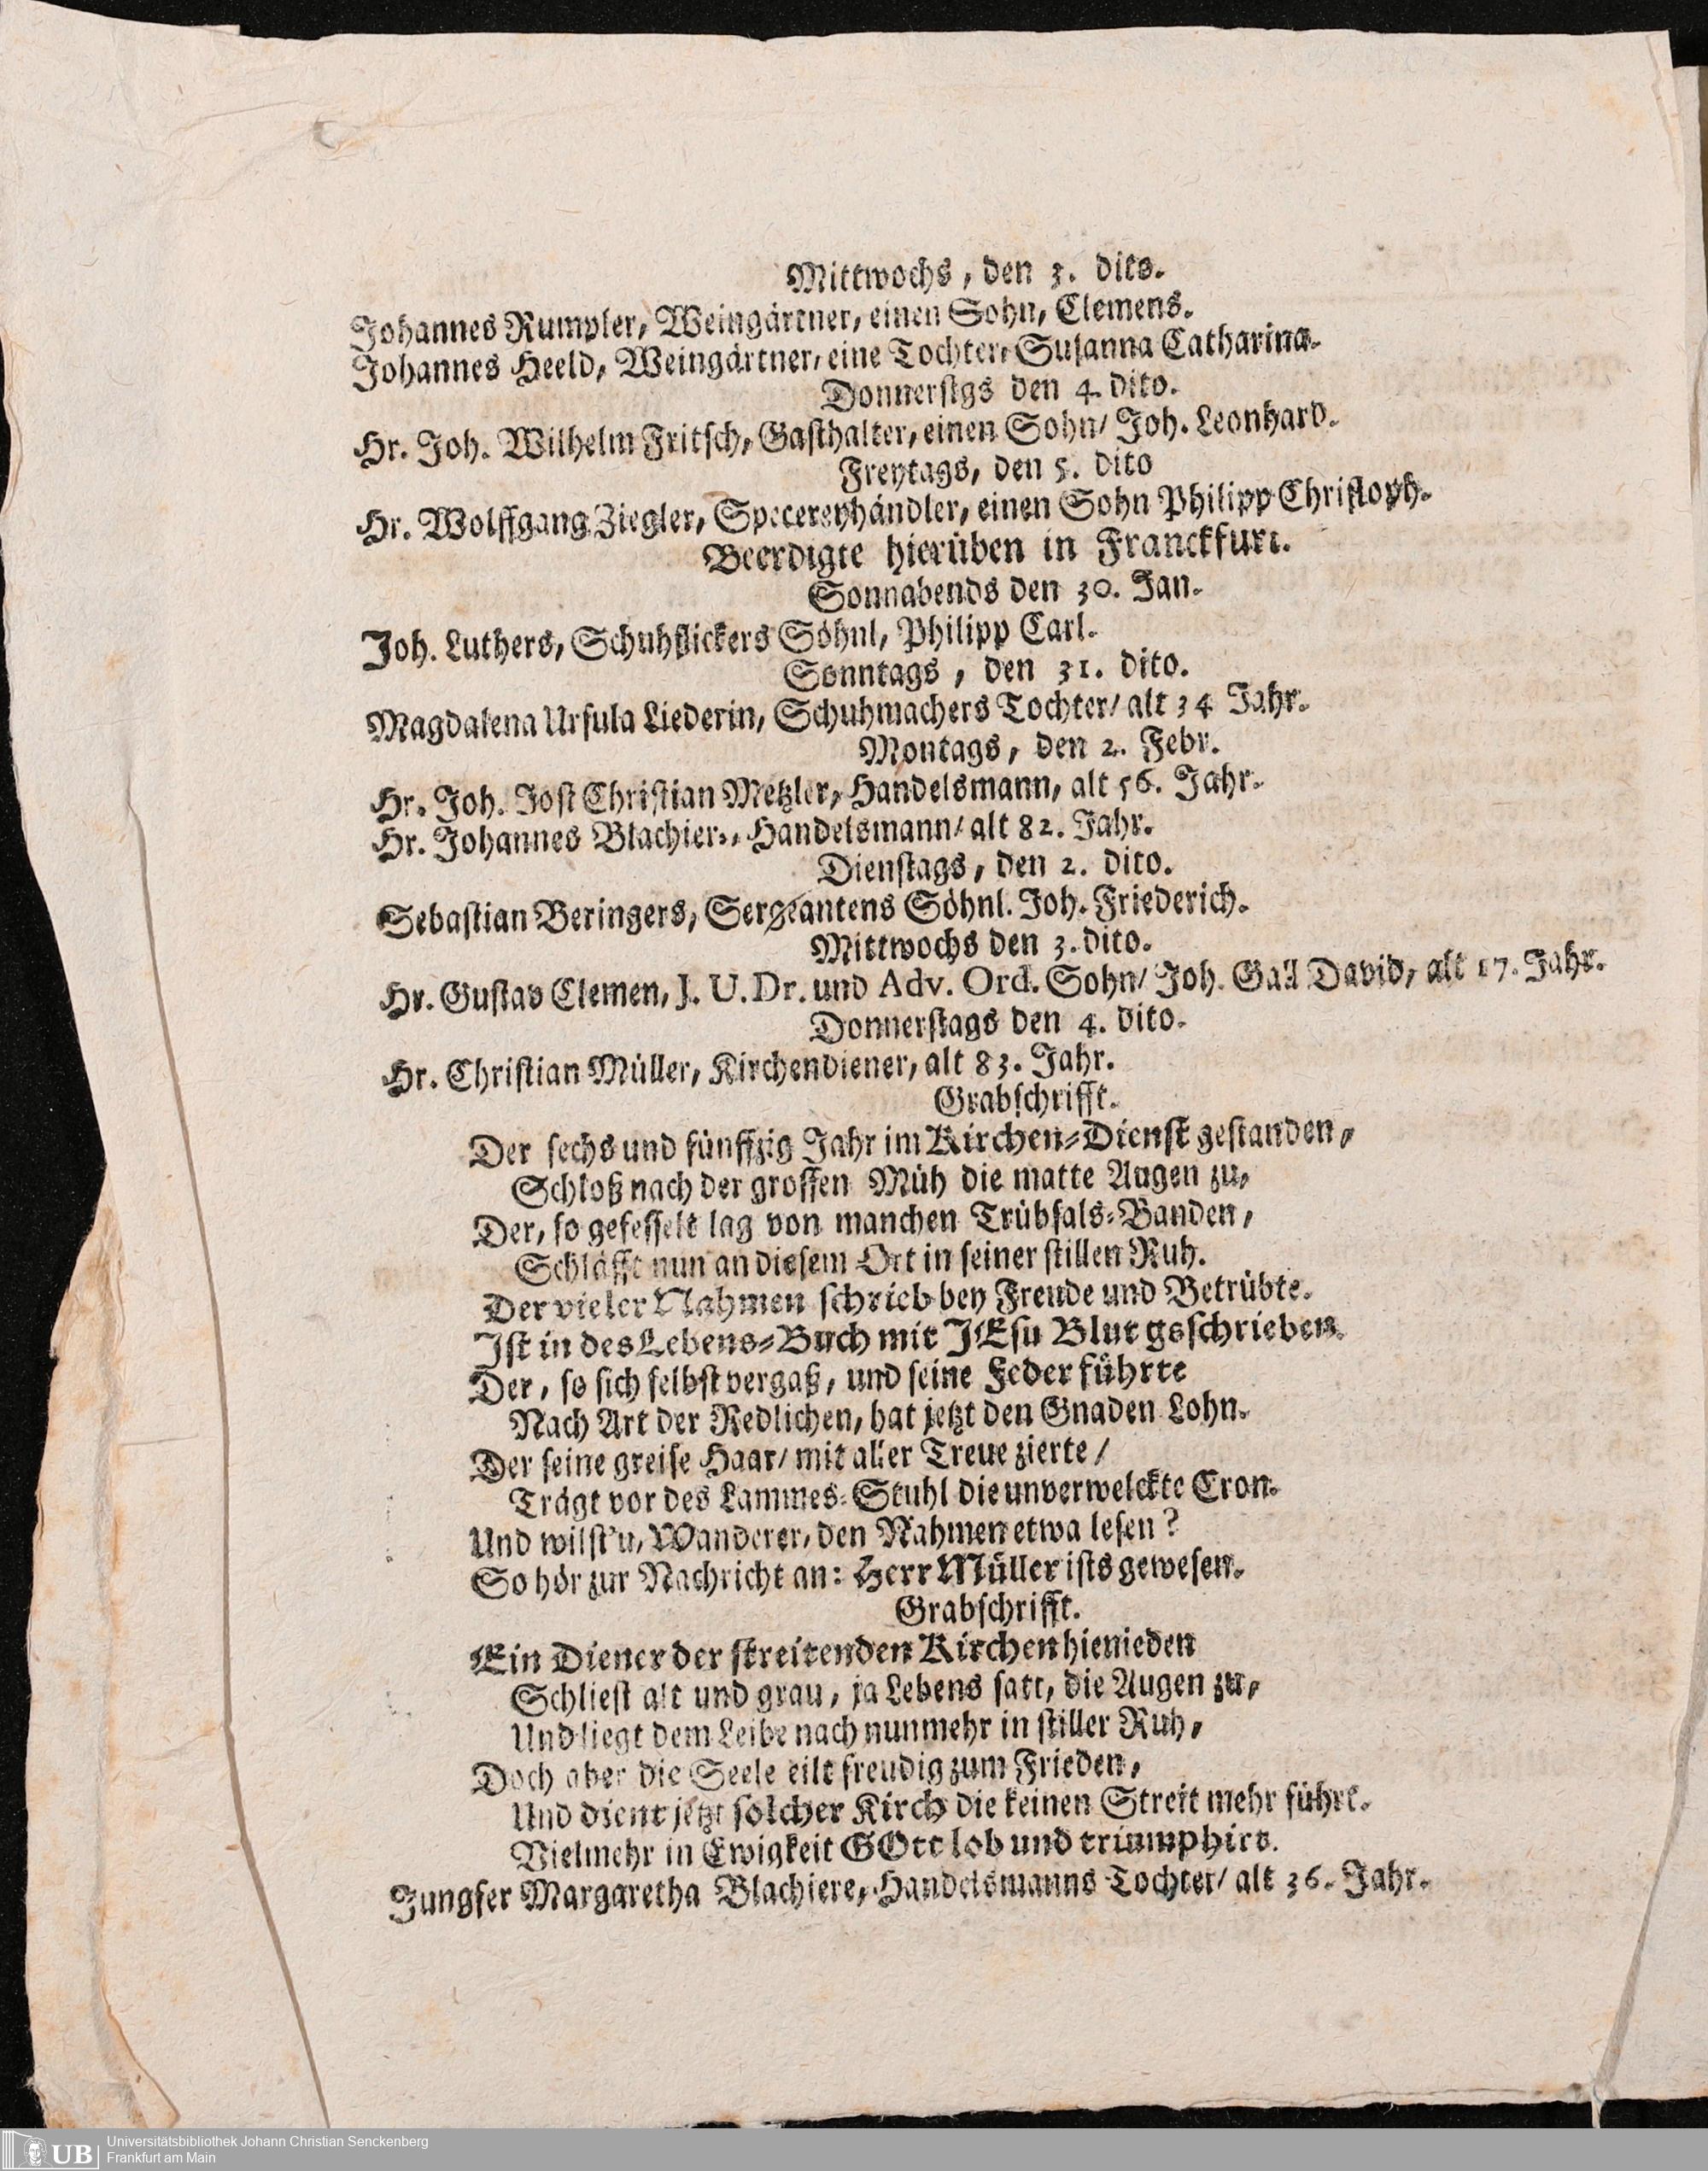 Mittwochs, den 3. dito.
Johannes Rumpler, Weingärtner, einen Sohn, Clemens.
Johannes Heeld, Weingärtner, eine Tochter, Susanna Catharina.
Donnerstgs den 4. dito.
Hr. Joh. Wilhelm Fritsch, Gasthalter, einen Sohn/ Joh. Leonhard.
Freytags, den 5. dito
Hr. Wolffgang Ziegler, Specereyhändler, einen Sohn Philipp Christoph.
Beerdigte hierüben in Franckfurt.
Sonnabends den 30. Jan.
Joh. Luthers, Schuhflickers Söhnl, Philipp Carl.
Sonntags, den 31. dito.
Magdalena Ursula Liederin, Schuhmachers Tochter/ alt 34 Jahr.
Montags, den 2. Febr.
Hr. Joh. Jost Christian Metzler, Handelsmann, alt 56. Jahr.
Hr. Johannes Blachier., Handelsmann/ alt 82. Jahr.
Dienstags, den 2. dito.
Sebastian Beringers, Sergeantens Söhnl. Joh. Friederich.
Mittwochs den 3. dito.
Hr. Gustav Clemen, J. U. Dr. und Adv. Ord. Sohn/ Joh. Gall David, alt 17. Jahr.
Donnerstags den 4. dito.
Hr. Christian Müller, Kirchendiener, alt 83. Jahr.
Grabschrifft.
Der sechs und fünffzig Jahr im Kirchen-Dienst gestanden,
Schloß nach der grossen Müh die matte Augen zu,
Der, so gefesselt lag von manchen Trübsals-Banden,
Schläfft nun an diesem Ort in seiner stillen Ruh.
Der vieler Nahmen schrieb bey Freude und Betrübte.
Ist in des Lebens-Buch mit JEsu Blut gsschrieben.
Der, so sich selbst vergaß, und seine Feder führte
Nach Art der Redlichen, hat jetzt den Gnaden Lohn.
Der seine greise Haar/ mit aller Treue zierte/
Trägt vor des Lammes-Stuhl die unverwelckte Cron.
Und wilst'u, Wanderer, den Nahmen etwa lesen?
So hör zur Nachricht an: Herr Müller ists gewesen.
Grabschrifft.
Ein Diener der streitenden Kirchen hienieden
Schliest alt und grau, ja Lebens satt, die Augen zu,
Und liegt dem Leibe nach nunmehr in stiller Ruh,
Doch aber die Seele eilt freudig zum Frieden,
Und dient jetzt solcher Kirch die keinen Streit mehr führt.
Vielmehr in Ewigkeit GOtt lob und triumphirt.
Jungfer Margaretha Blachiere, Handelsmanns Tochter/ alt 36. Jahr.
UB
Universitätsbibliothek Johann Christian Senckenberg
Frankfurt am Main